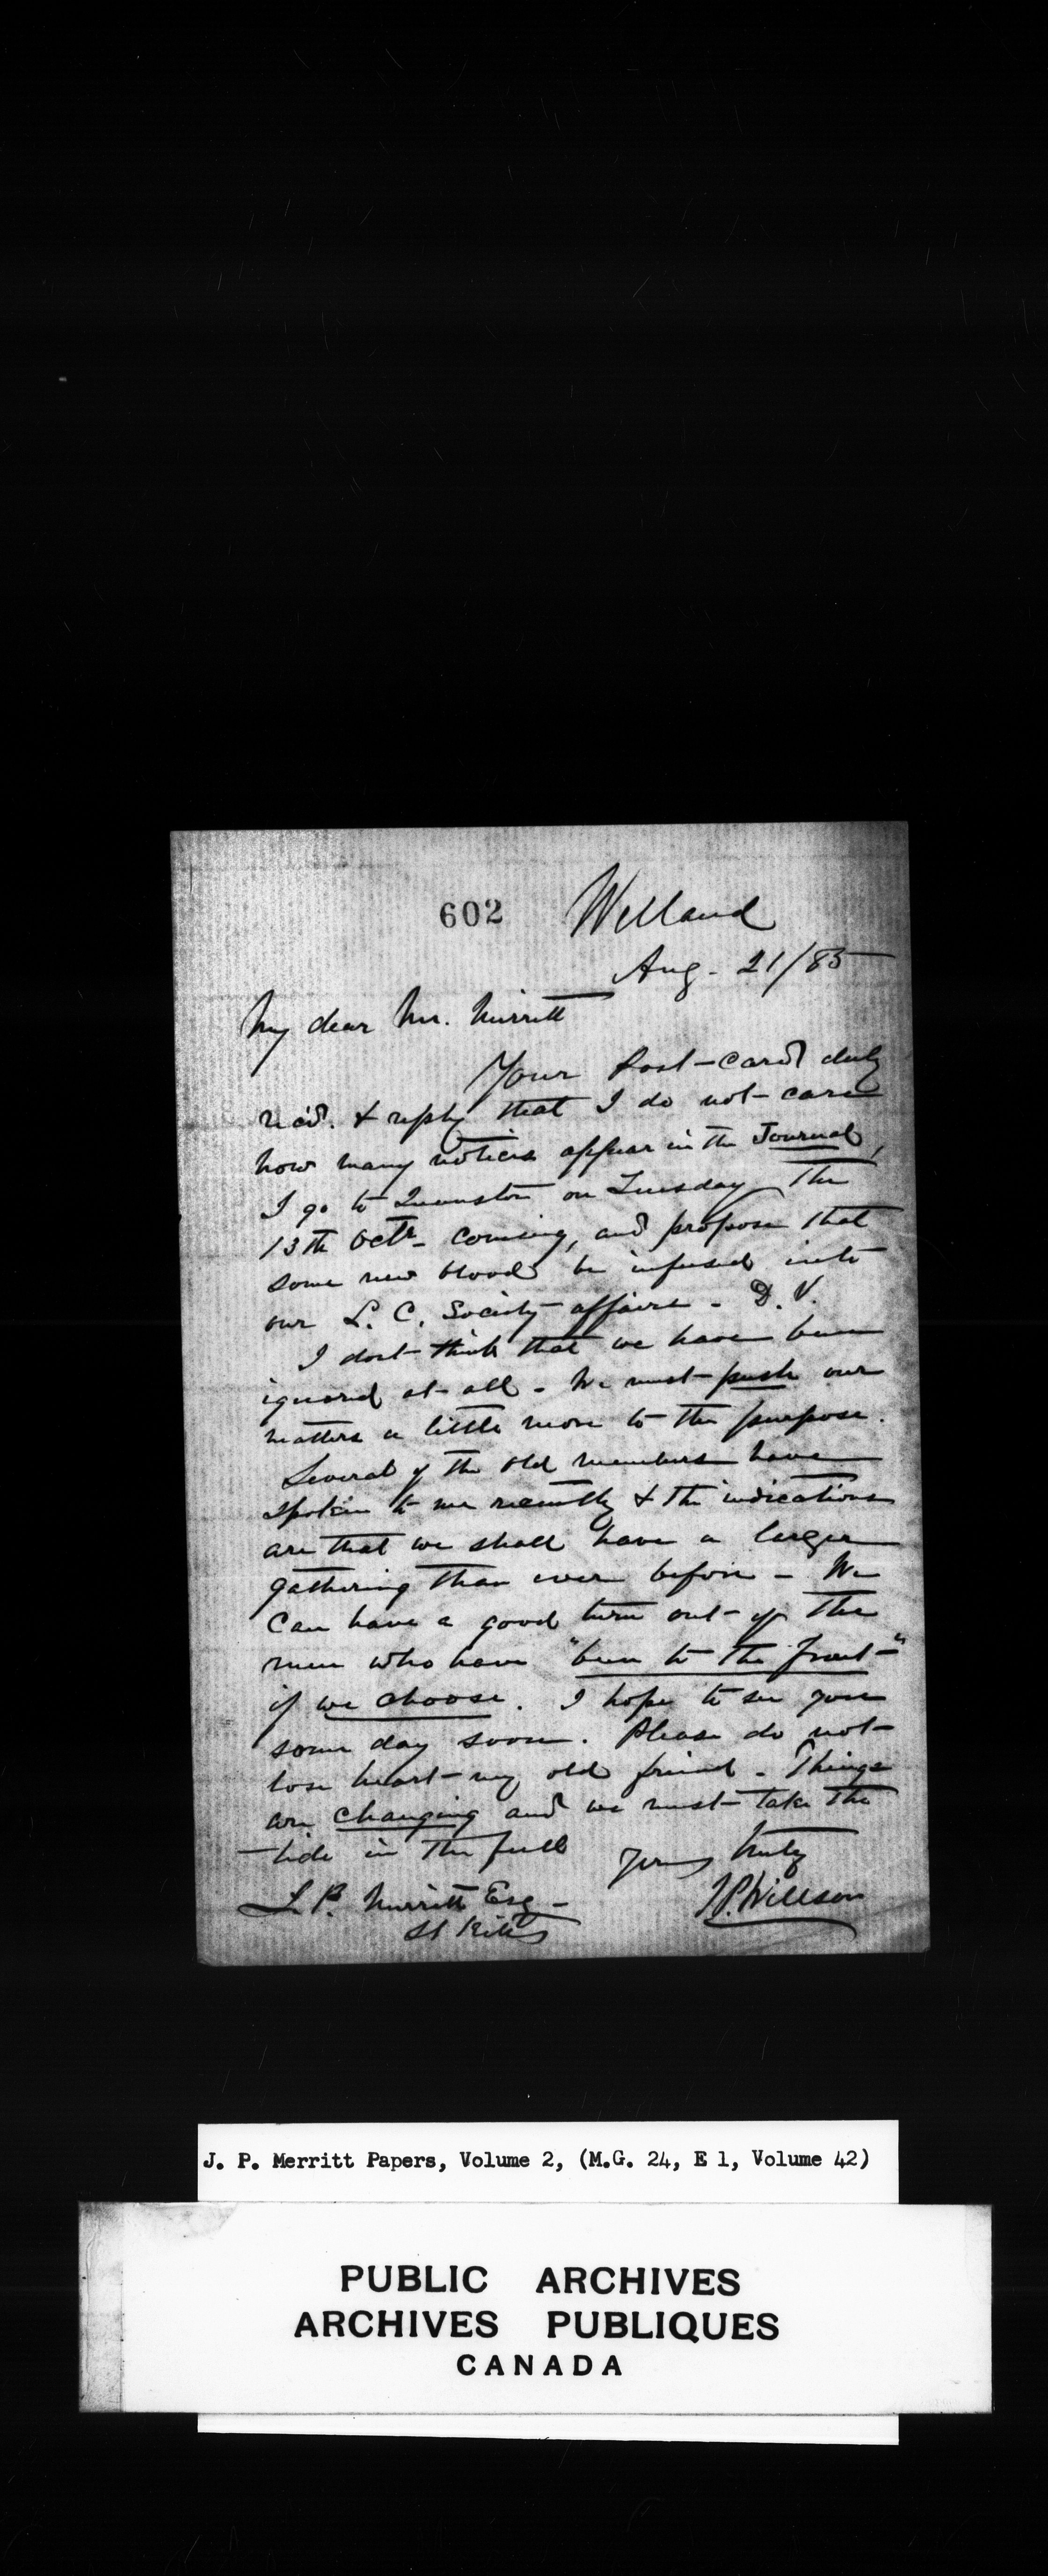 602
Welland
Aug. 21/85
My dear Mr. Merritt
Your Post-Card duly
rec'd. & reply that I do not care
how many notices appear in the Journal,
I go to Queenston on Tuesday The
13th Octr. coming, and propose that
some new blood be infused into
our L. C. Society affairs - D. V.
I dont think that we have been
ignored at all - We must push our
matters a little more to the purpose.
Several of the old members have
spoken to me recently & the indications
are that we shall have a larger
gathering than ever before - We
can have a good turn out of the
men who have "been to the front"
if we choose. I hope to see you
some day soon. Please do not
lose heart my old friend - Things
are changing and we must take the
tide in the full
Yours truly
Willson
Merritt Esq -
St Kitts
J. P. Merritt Papers, Volume 2, (M.G. 24, E 1, Volume 42)
PUBLIC ARCHIVES
ARCHIVES PUBLIQUES
CANADA